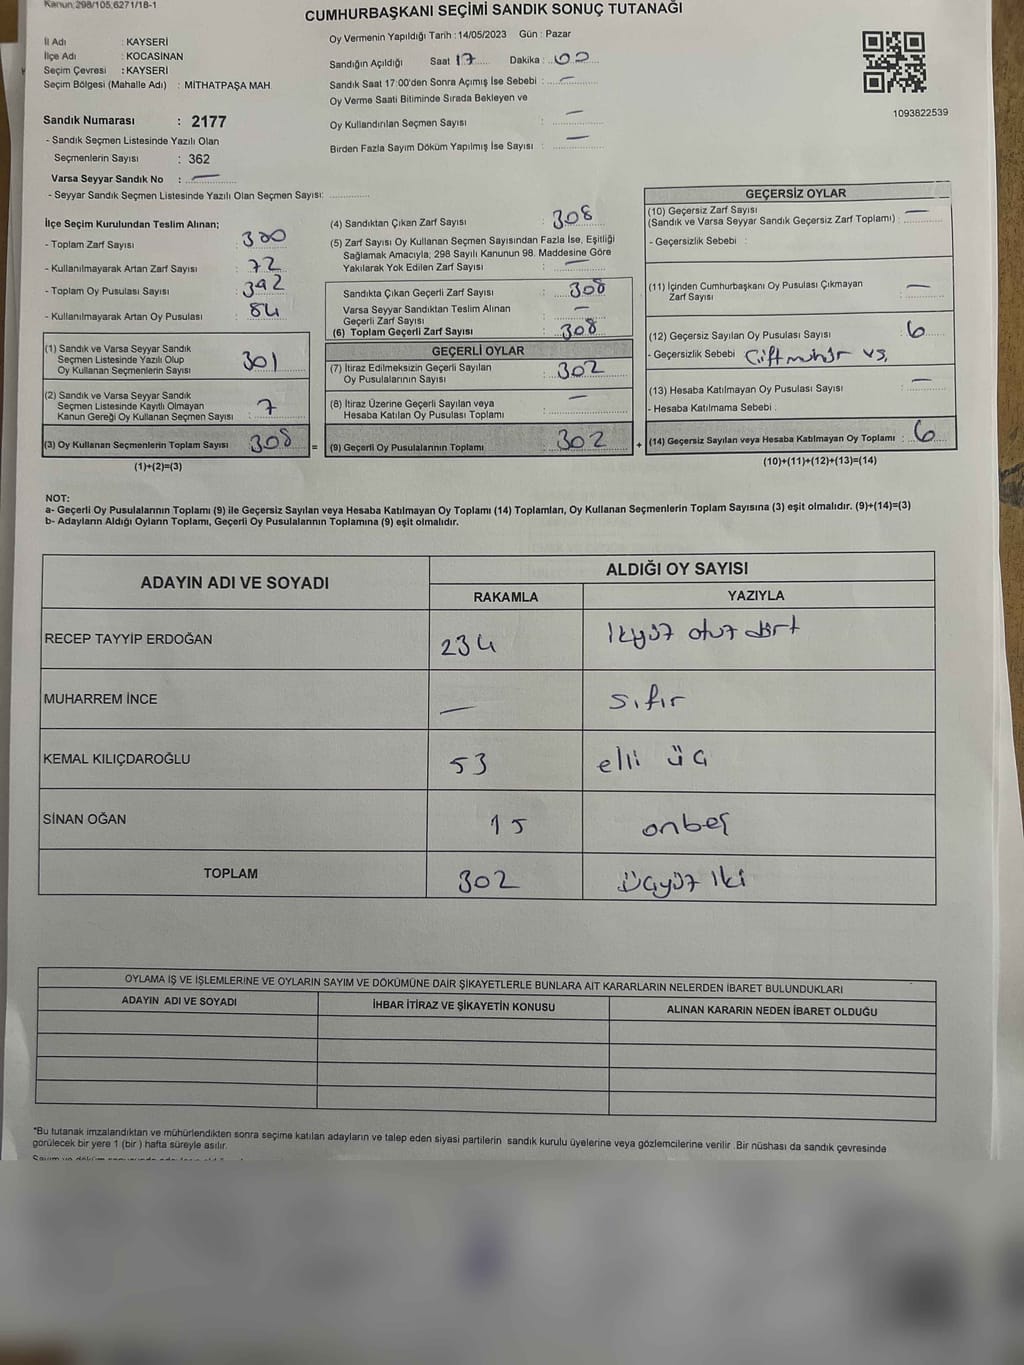 Kanun: 298/105,6271/18-1
CUMHURBAŞKANI SEÇİMİ SANDIK SONUÇ TUTANAĞI
İl Adı : KAYSERİ
İlçe Adı : KOCASİNAN
Seçim Çevresi : KAYSERİ
Seçim Bölgesi (Mahalle Adı) : MİTHATPAŞA MAH.
Oy Vermenin Yapıldığı Tarih : 14/05/2023 Gün : Pazar
Sandığın Açıldığı Saat 17 Dakika : 00
Sandık Saat 17:00'den Sonra Açımış İse Sebebi : —
Oy Verme Saati Bitiminde Sırada Bekleyen ve
Oy Kullandırılan Seçmen Sayısı : —
Birden Fazla Sayım Döküm Yapılmış İse Sayısı : —
1093822539
Sandık Numarası : 2177
- Sandık Seçmen Listesinde Yazılı Olan
Seçmenlerin Sayısı : 362
Varsa Seyyar Sandık No : —
- Seyyar Sandık Seçmen Listesinde Yazılı Olan Seçmen Sayısı:
İlçe Seçim Kurulundan Teslim Alınan;
- Toplam Zarf Sayısı :
- Kullanılmayarak Artan Zarf Sayısı : 72
- Toplam Oy Pusulası Sayısı : 392
- Kullanılmayarak Artan Oy Pusulası : 84
(1) Sandık ve Varsa Seyyar Sandık
Seçmen Listesinde Yazılı Olup
Oy Kullanan Seçmenlerin Sayısı : 301
(2) Sandık ve Varsa Seyyar Sandık
Seçmen Listesinde Kayıtlı Olmayan
Kanun Gereği Oy Kullanan Seçmen Sayısı : 7
(3) Oy Kullanan Seçmenlerin Toplam Sayısı : 308 =
(1)+(2)=(3)
(4) Sandıktan Çıkan Zarf Sayısı : 308
(5) Zarf Sayısı Oy Kullanan Seçmen Sayısından Fazla İse, Eşitliği
Sağlamak Amacıyla; 298 Sayılı Kanunun 98. Maddesine Göre
Yakılarak Yok Edilen Zarf Sayısı : —
Sandıkta Çıkan Geçerli Zarf Sayısı : 308
Varsa Seyyar Sandıktan Teslim Alınan
Geçerli Zarf Sayısı : —
(6) Toplam Geçerli Zarf Sayısı : 308
GEÇERLİ OYLAR
(7) İtiraz Edilmeksizin Geçerli Sayılan
Oy Pusulalarının Sayısı : 302
(8) İtiraz Üzerine Geçerli Sayılan veya
Hesaba Katılan Oy Pusulası Toplamı : —
(9) Geçerli Oy Pusulalarının Toplamı : 302 +
GEÇERSİZ OYLAR
(10) Geçersiz Zarf Sayısı
(Sandık ve Varsa Seyyar Sandık Geçersiz Zarf Toplamı) : —
- Geçersizlik Sebebi :
(11) İçinden Cumhurbaşkanı Oy Pusulası Çıkmayan
Zarf Sayısı : —
(12) Geçersiz Sayılan Oy Pusulası Sayısı : 6
- Geçersizlik Sebebi Çift mühür vs,
(13) Hesaba Katılmayan Oy Pusulası Sayısı : —
- Hesaba Katılmama Sebebi .
(14) Geçersiz Sayılan veya Hesaba Katılmayan Oy Toplamı : 6
(10)+(11)+(12)+(13)=(14)
NOT:
a- Geçerli Oy Pusulalarının Toplamı (9) ile Geçersiz Sayılan veya Hesaba Katılmayan Oy Toplamı (14) Toplamları, Oy Kullanan Seçmenlerin Toplam Sayısına (3) eşit olmalıdır. (9)+(14)=(3)
b- Adayların Aldığı Oyların Toplamı, Geçerli Oy Pusulalarının Toplamına (9) eşit olmalıdır.
ADAYIN ADI VE SOYADI
ALDIĞI OY SAYISI
RAKAMLA YAZIYLA
RECEP TAYYİP ERDOĞAN 234 İkiyüz otuz dört
MUHARREM İNCE — sıfır
KEMAL KILIÇDAROĞLU 53 elli üç
SİNAN OĞAN 15 onbeş
TOPLAM 302 üçyüz iki
OYLAMA İŞ VE İŞLEMLERİNE VE OYLARIN SAYIM VE DÖKÜMÜNE DAİR ŞİKAYETLERLE BUNLARA AİT KARARLARIN NELERDEN İBARET BULUNDUKLARI
ADAYIN ADI VE SOYADI İHBAR İTİRAZ VE ŞİKAYETİN KONUSU ALINAN KARARIN NEDEN İBARET OLDUĞU
*Bu tutanak imzalandıktan ve mühürlendikten sonra seçime katılan adayların ve talep eden siyasi partilerin sandık kurulu üyelerine veya gözlemcilerine verilir .Bir nüshası da sandık çevresinde
görülecek bir yere 1 (bir ) hafta süreyle asılır.